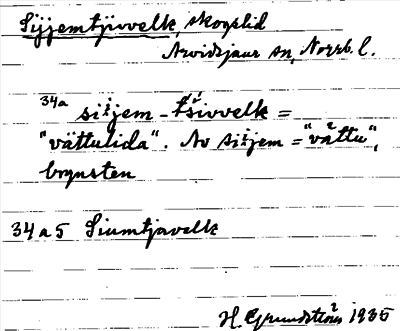 Sijjemtjivvelk, skogslid
Arvidsjaur sn, Norrb. l.
34a siijem - tsivvelk =
"vättulida". Av siijem = "vättu",
brynsten
34 a 5 Siumtjavelk
H. Grundström 1935